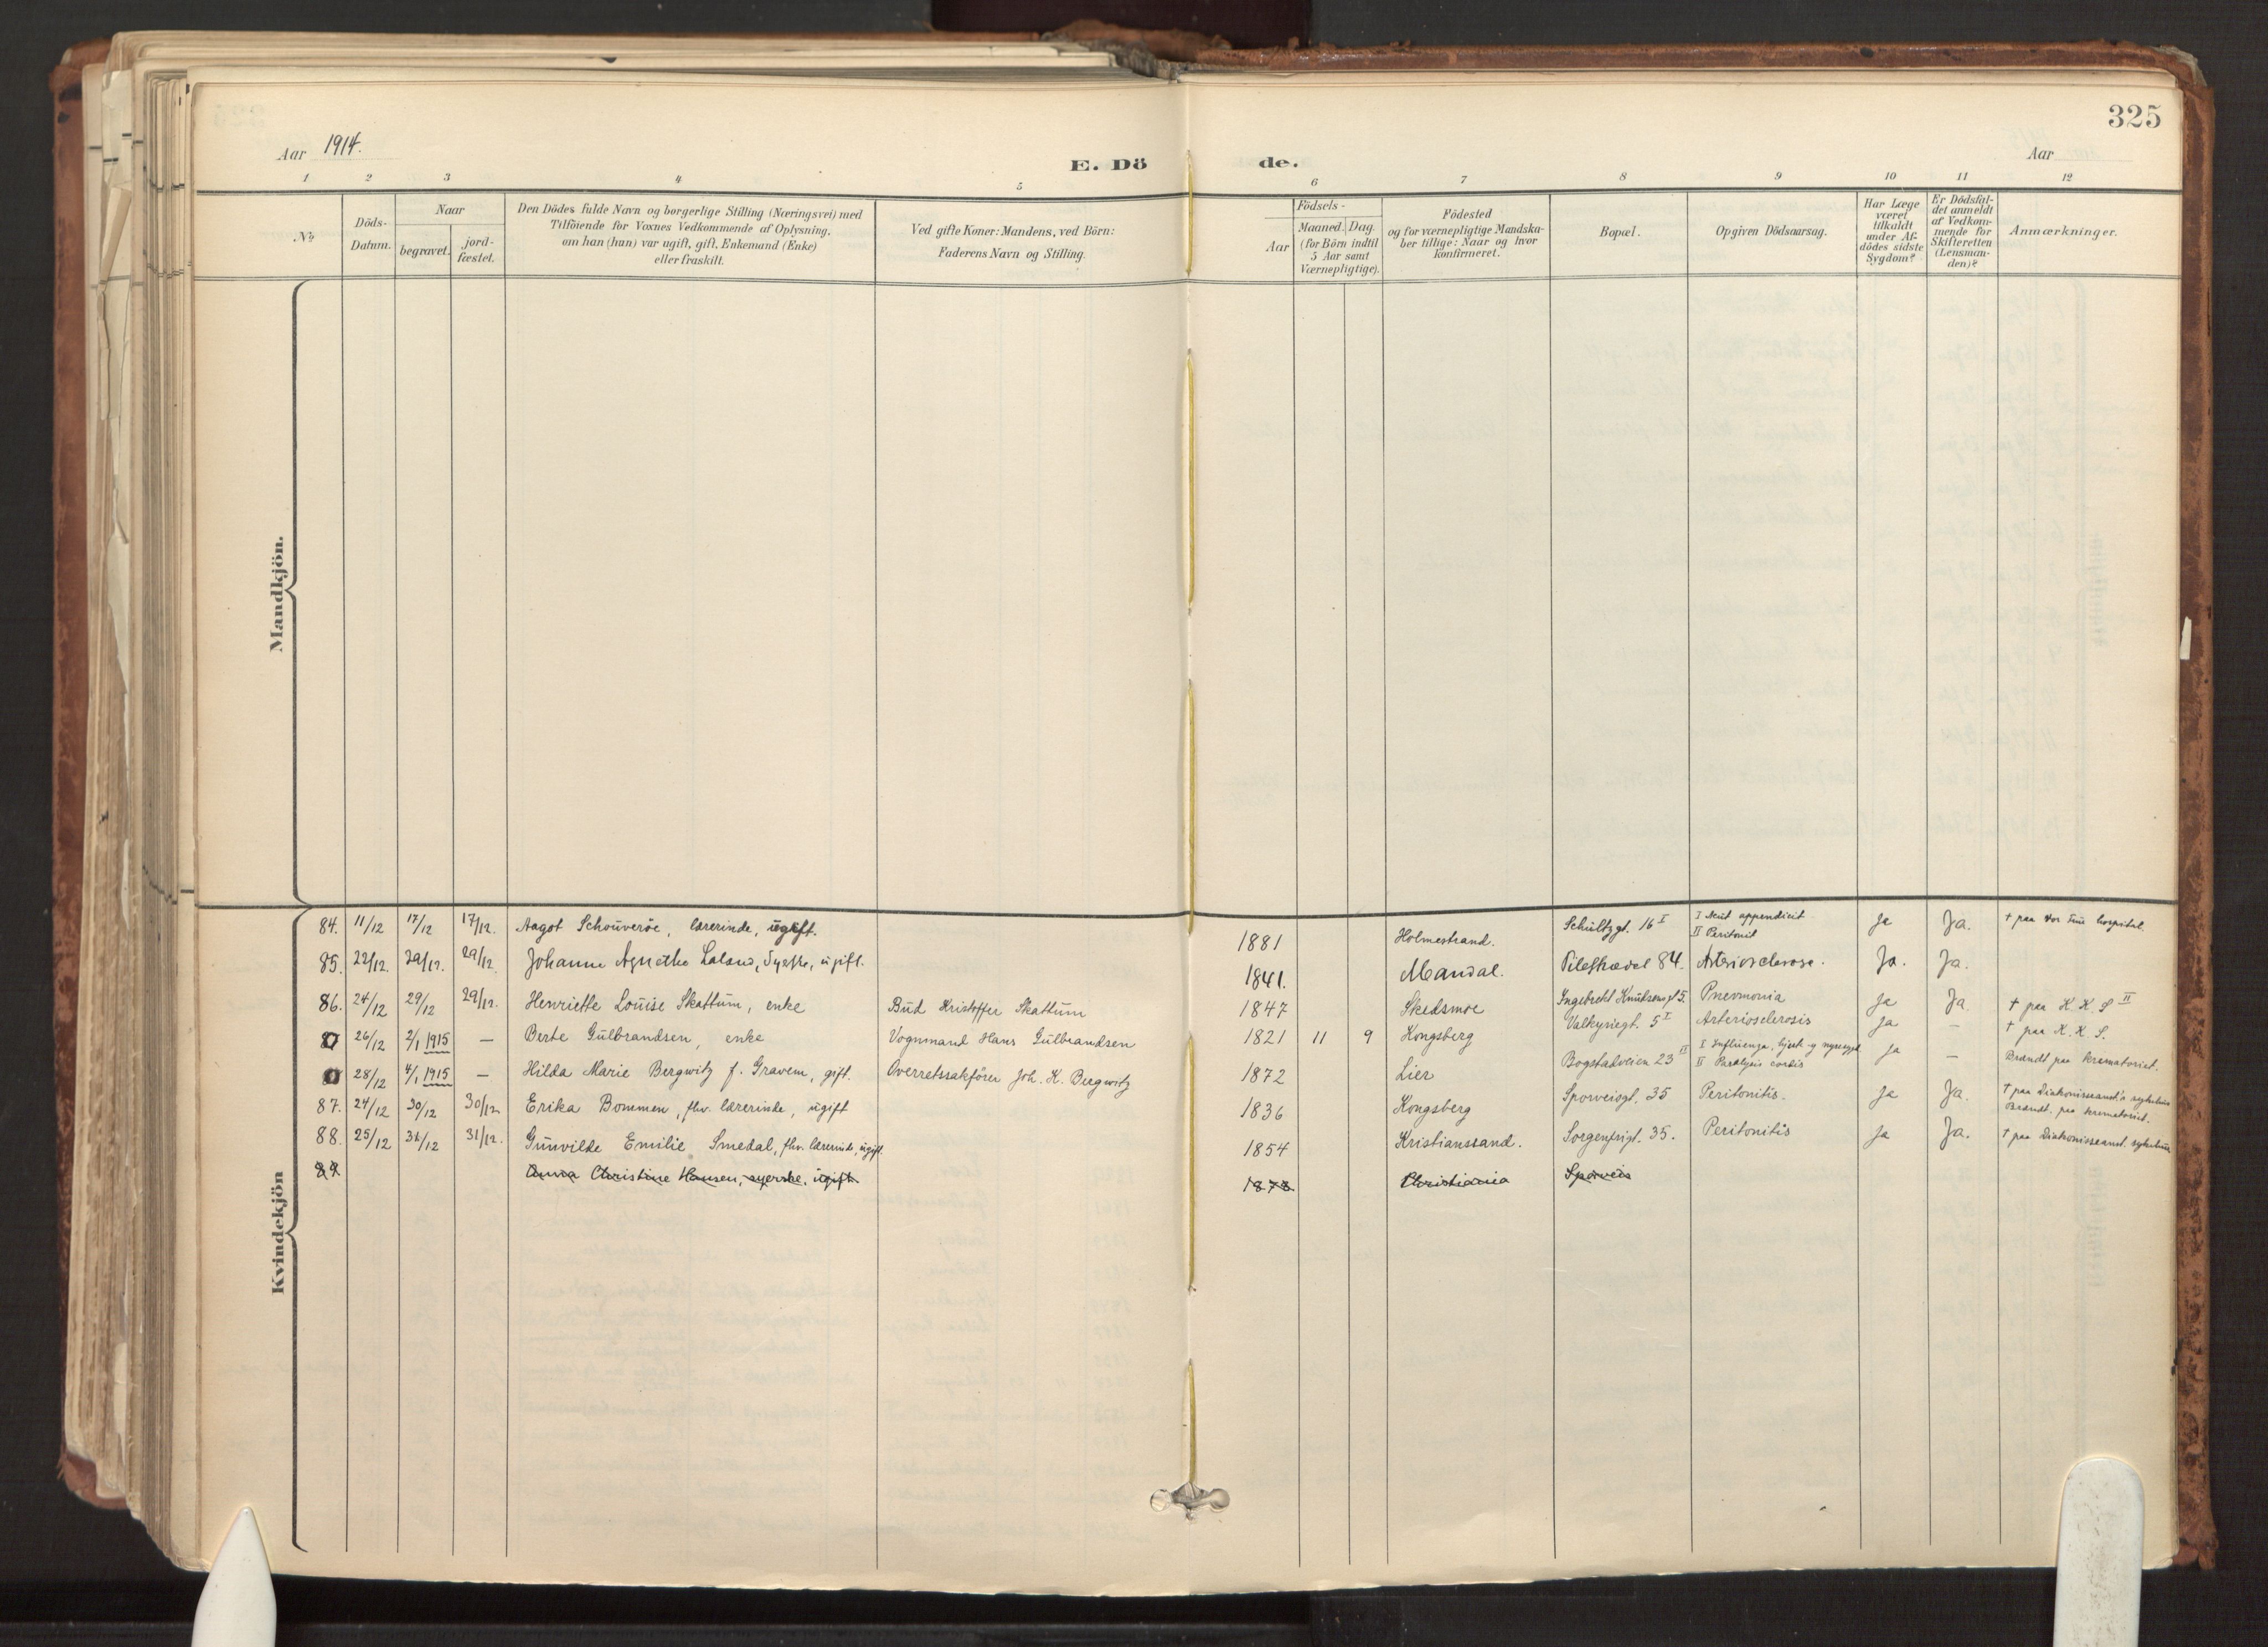 325
Aar 1914.
E. Dö de.
Aar
1 2 3 4 5 6 7 8 9 10 11 12
No
Döds-Datum.
Naar
begravet.
jord-fæstet.
Den Dödes fulde Navn og borgerlige Stilling (Næringsvei) med
Tilföiende for Voxnes Vedkommende af Oplysning,
om han (hun) var ugift, gift, Enkemand (Enke)
eller fraskilt.
Ved gifte Koner: Mandens, ved Börn:
Faderens Navn og Stilling.
Födsels-
Aar
Maaned. Dag.
(for Börn indtil
5 Aar samt
Værnepligtige).
Födested
og for værnepligtige Mandska-
ber tillige: Naar og hvor
konfirmeret.
Bopæl.
Opgiven Dödsaarsag.
Har Læge
været
tilkaldt
under Af-
dödes sidste
Sygdom?
Er Dödsfal-
det anmeldt
af Vedkom-
mende for
Skifteretten
(Lensman-
den)?
Anmærkninger.
Mandkjön.
Kvindekjön
84. 11/12 17/12 17/12. Aagot Schouveröe, lærerinde, ugift. 1881 Holmestrand. Schultzgt. 16 I I Akut appendicit II Peritonit Ja Ja. † paa Vor Frue hospital.
85. 22/12. 29/12. 29/12. Johanne Agnethe Laland, Syerske, ugift. 1841. Mandal. Pilestrædet 84. Arteriosclerose. Ja. Ja.
86. 24/12 29/12 29/12. Henriette Louise Skattum, enke Bud Kristoffer Skattum 1847 Skedsmoe Ingebrecht Knudsensgt 5. Pneumonia Ja Ja † paa K. K. S II
0 26/12 2/1 1915 — Berte Gulbrandsen, enke Vognmand Hans Gulbrandsen 1821 11 9 Kongsberg Valkyriegt. 5 I Arteriosclerosis Ja — † paa K. K. S.
0 28/12 4/1 1915 — Hilda Marie Bergwitz f. Gravem, gift. Overretssakförer Joh. K. Bergwitz 1872 Lier Bogstadveien 23 II I Influenza, hjerte og nyresygd. II Paralysis cordis Ja — Brændt paa krematoriet.
87. 24/12 30/12 30/12 Erika Bommen, fhv. lærerinde, ugift 1836 Kongsberg Sporveisgt. 35 Peritonitis. Ja Ja. † paa Diakonisseanst's sykehus Brændt. paa krematoriet.
88. 25/12 31/12 31/12. Gunvilde Emilie Smedal, fhv. lærerinde, ugift. 1854 Kristianssand. Sorgenfrigt. 35. Peritonitis Ja Ja. † paa Diakonisseanst. sykehus
89 Anna Christine Hansen, syerske, ugift 1878. Christiania Sporveis